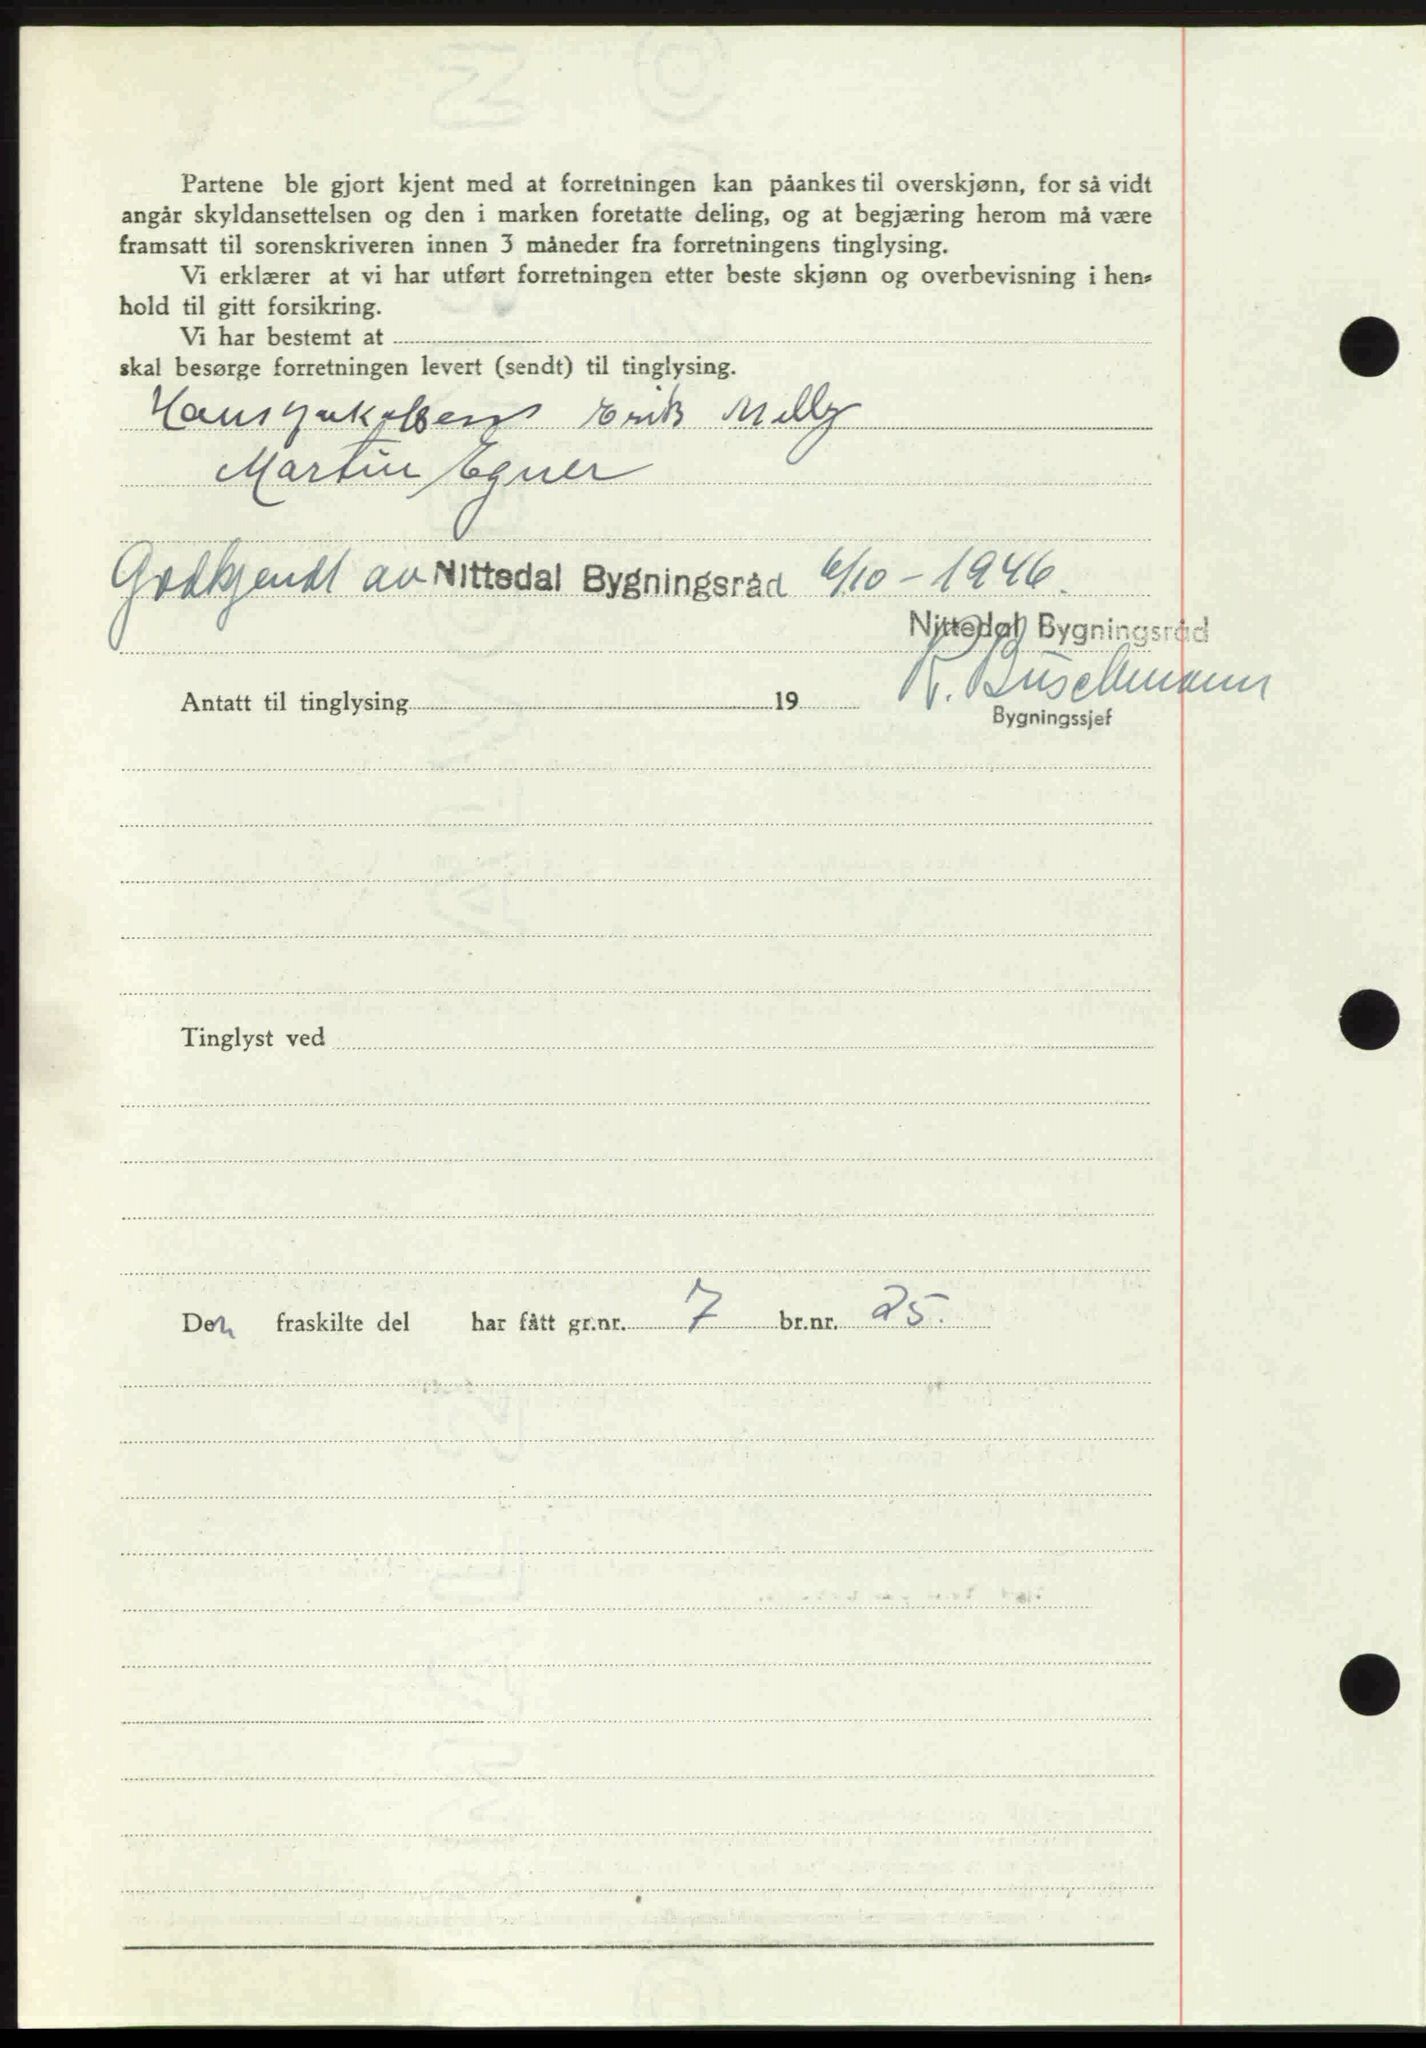 Partene ble gjort kjent med at forretningen kan påankes til overskjønn, for så vidt
angår skyldansettelsen og den i marken foretatte deling, og at begjæring herom må være
framsatt til sorenskriveren innen 3 måneder fra forretningens tinglysing.
Vi erklærer at vi har utført forretningen etter beste skjønn og overbevisning i hen-
hold til gitt forsikring.
Vi har bestemt at
skal besørge forretningen levert (sendt) til tinglysing.
Hans Jakobsen Erik Melby
Martin Egner
Godkjendt av Nittedal Bygningsråd 6/10-1946.
Nittedal Bygningsråd
R. Buschmann
Antatt til tinglysing 19
Bygningssjef
Tinglyst ved
Den fraskilte del har fått gr.nr. 7 br.nr. 25.